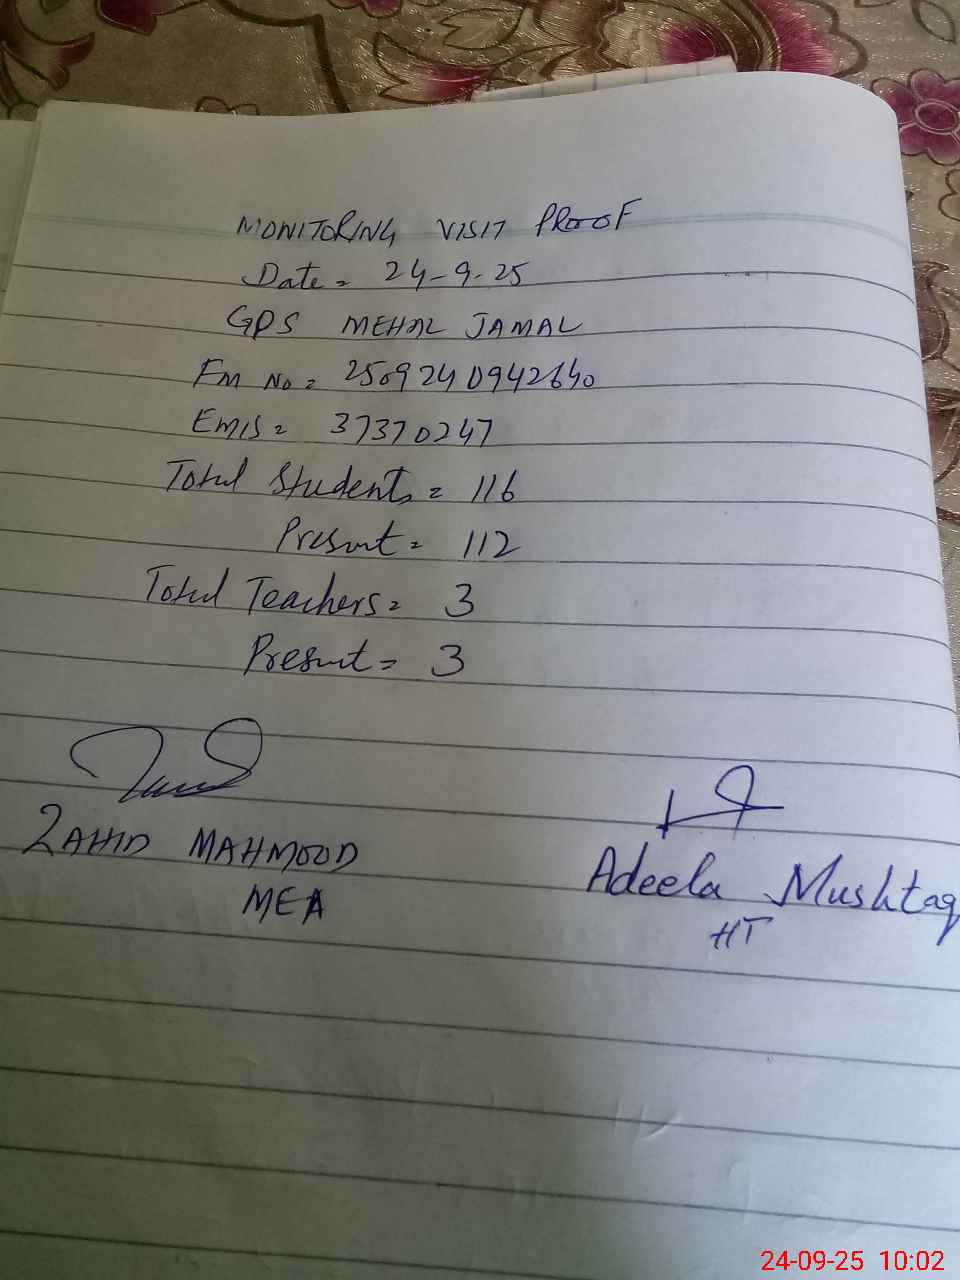 MONITORING VISIT PROOF
Date = 24-9-25
GPS MEHAL JAMAL
FM No = 2509240942640
EMIS = 37370247
Total Students = 116
Present = 112
Total Teachers = 3
Present = 3
ZAHID MAHMOOD
MEA
Adeela Mushtaq
HT
24-09-25 10:02